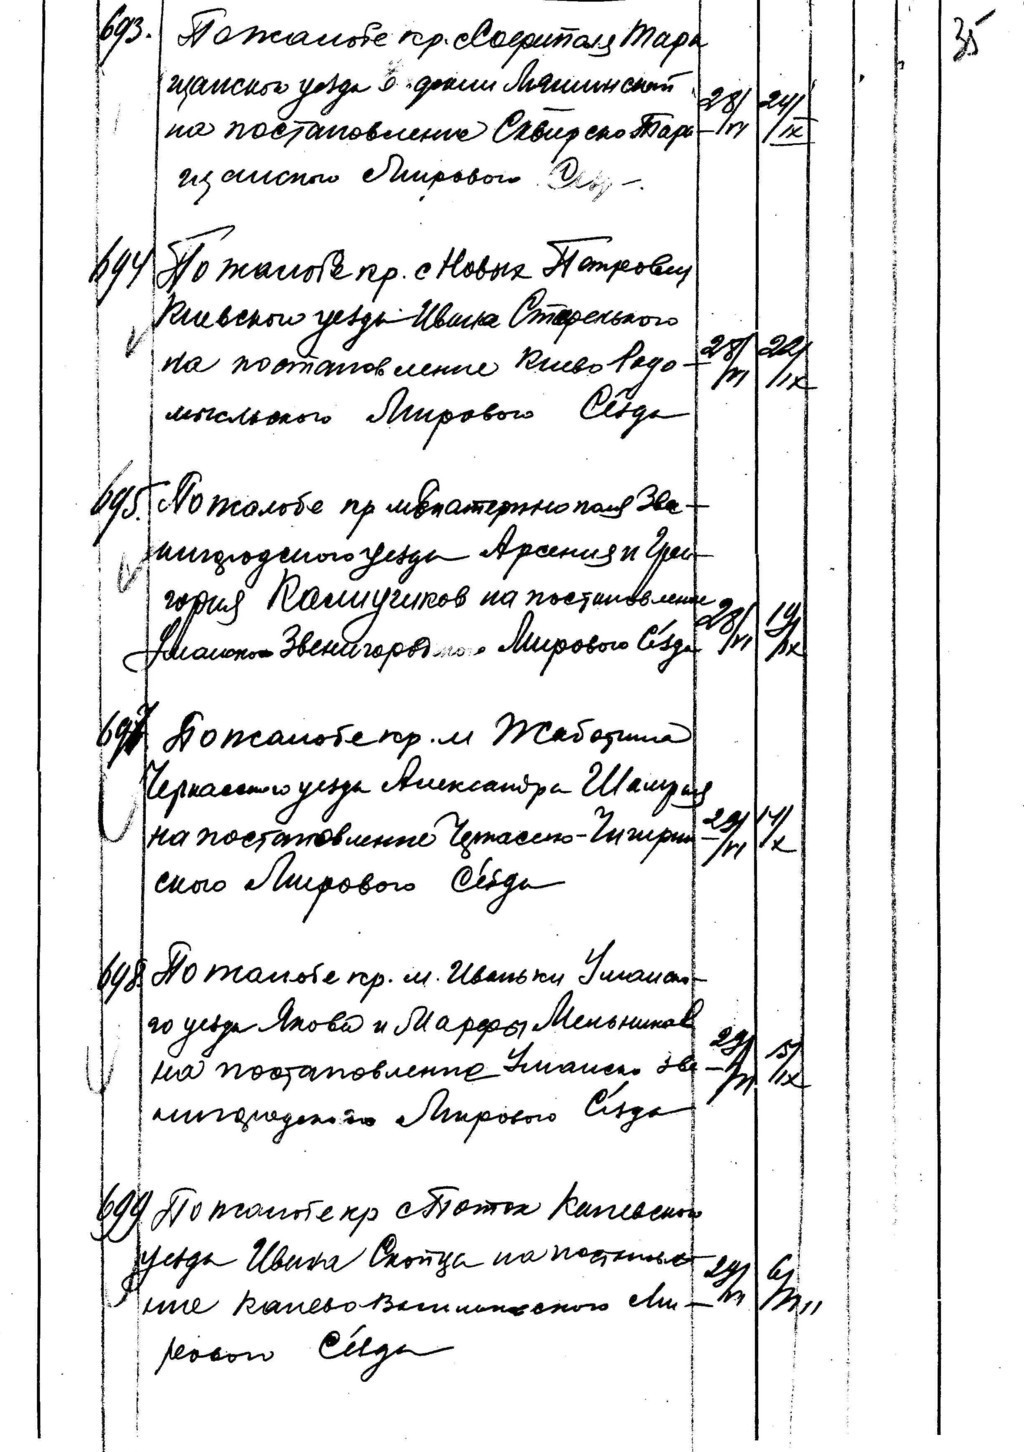 35
693. По жалобе кр. с Тара
щанского уезда
на постановление Сквирско Тара 28/VI 24/IX
щанского Мирового
694 По жалобе кр. с Новых Петровец
Киевского уезда Ивана Старенького
на постановление Киево Радо- 28/VI 22/IX
мысльского Мирового Съезда
695. По жалобе кр м Екатеринополя Зве-
нигородского уезда Арсения и Григ
гория на постановление
Уманско Звенигородского Мирового Съезда 28/VI 19/IX
697 По жалобе кр. м Жаботина
Черкасского уезда Александра Шамрая
на постановление Черкасско-Чигирин 29/VI 14/X
ского Мирового Съезда
698. По жалобе кр. м. Иваньки Уманско-
го уезда Якова и Марфы Мельников
на постановление Уманско Зве- 29/VI 15/IX
нигородского Мирового Съезда
699 По жалобе кр с Поток Каневского
уезда Ивана Скопца на постановле
ние Канево Васильковского Ми- 29/VI
рового Съезда